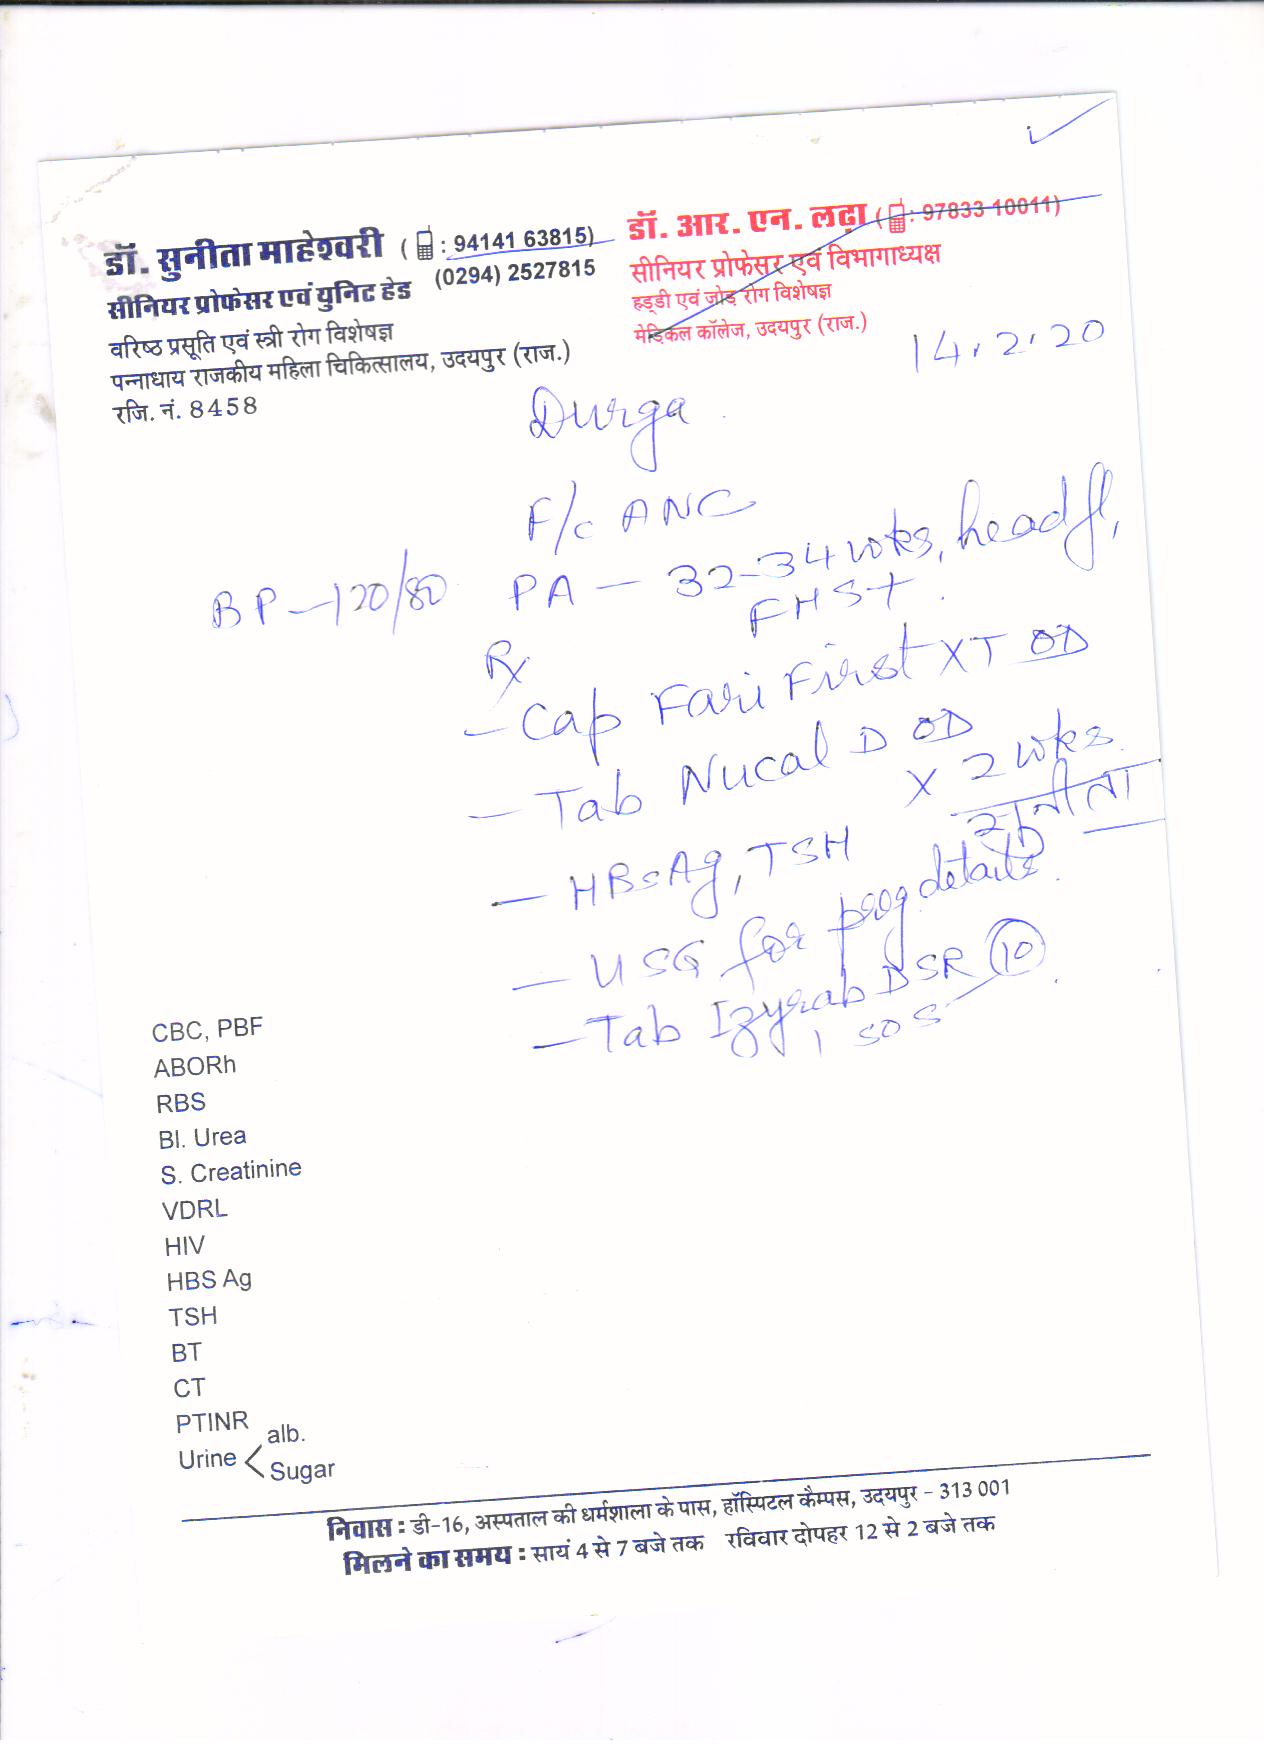 डॉ. सुनीता माहेश्वरी ( : 94141 63815)
(0294) 2527815
सीनियर प्रोफेसर एवं युनिट हेड
वरिष्ठ प्रसूति एवं स्त्री रोग विशेषज्ञ
पन्नाधाय राजकीय महिला चिकित्सालय, उदयपुर (राज.)
रजि. नं. 8458
डॉ. आर. एन. लढ़ा ( : 97833 10011)
सीनियर प्रोफेसर एवं विभागाध्यक्ष
हड्डी एवं जोड़ रोग विशेषज्ञ
मेडिकल कॉलेज, उदयपुर (राज.)
14.2.20
Durga
F/c ANC
BP - 120/80
PA - 32-34 wks, head fl,
FHS+.
Rx
- Cap Fari First XT OD
- Tab Nucal D OD
x 2 wks.
सुनीता
- HBsAg, TSH
- USG for preg details.
- Tab Izyrab DSR 10
1 SOS
CBC, PBF
ABORh
RBS
Bl. Urea
S. Creatinine
VDRL
HIV
HBS Ag
TSH
BT
CT
PTINR
Urine < alb.
Sugar
निवास : डी-16, अस्पताल की धर्मशाला के पास, हॉस्पिटल कैम्पस, उदयपुर - 313 001
मिलने का समय : सायं 4 से 7 बजे तक रविवार दोपहर 12 से 2 बजे तक